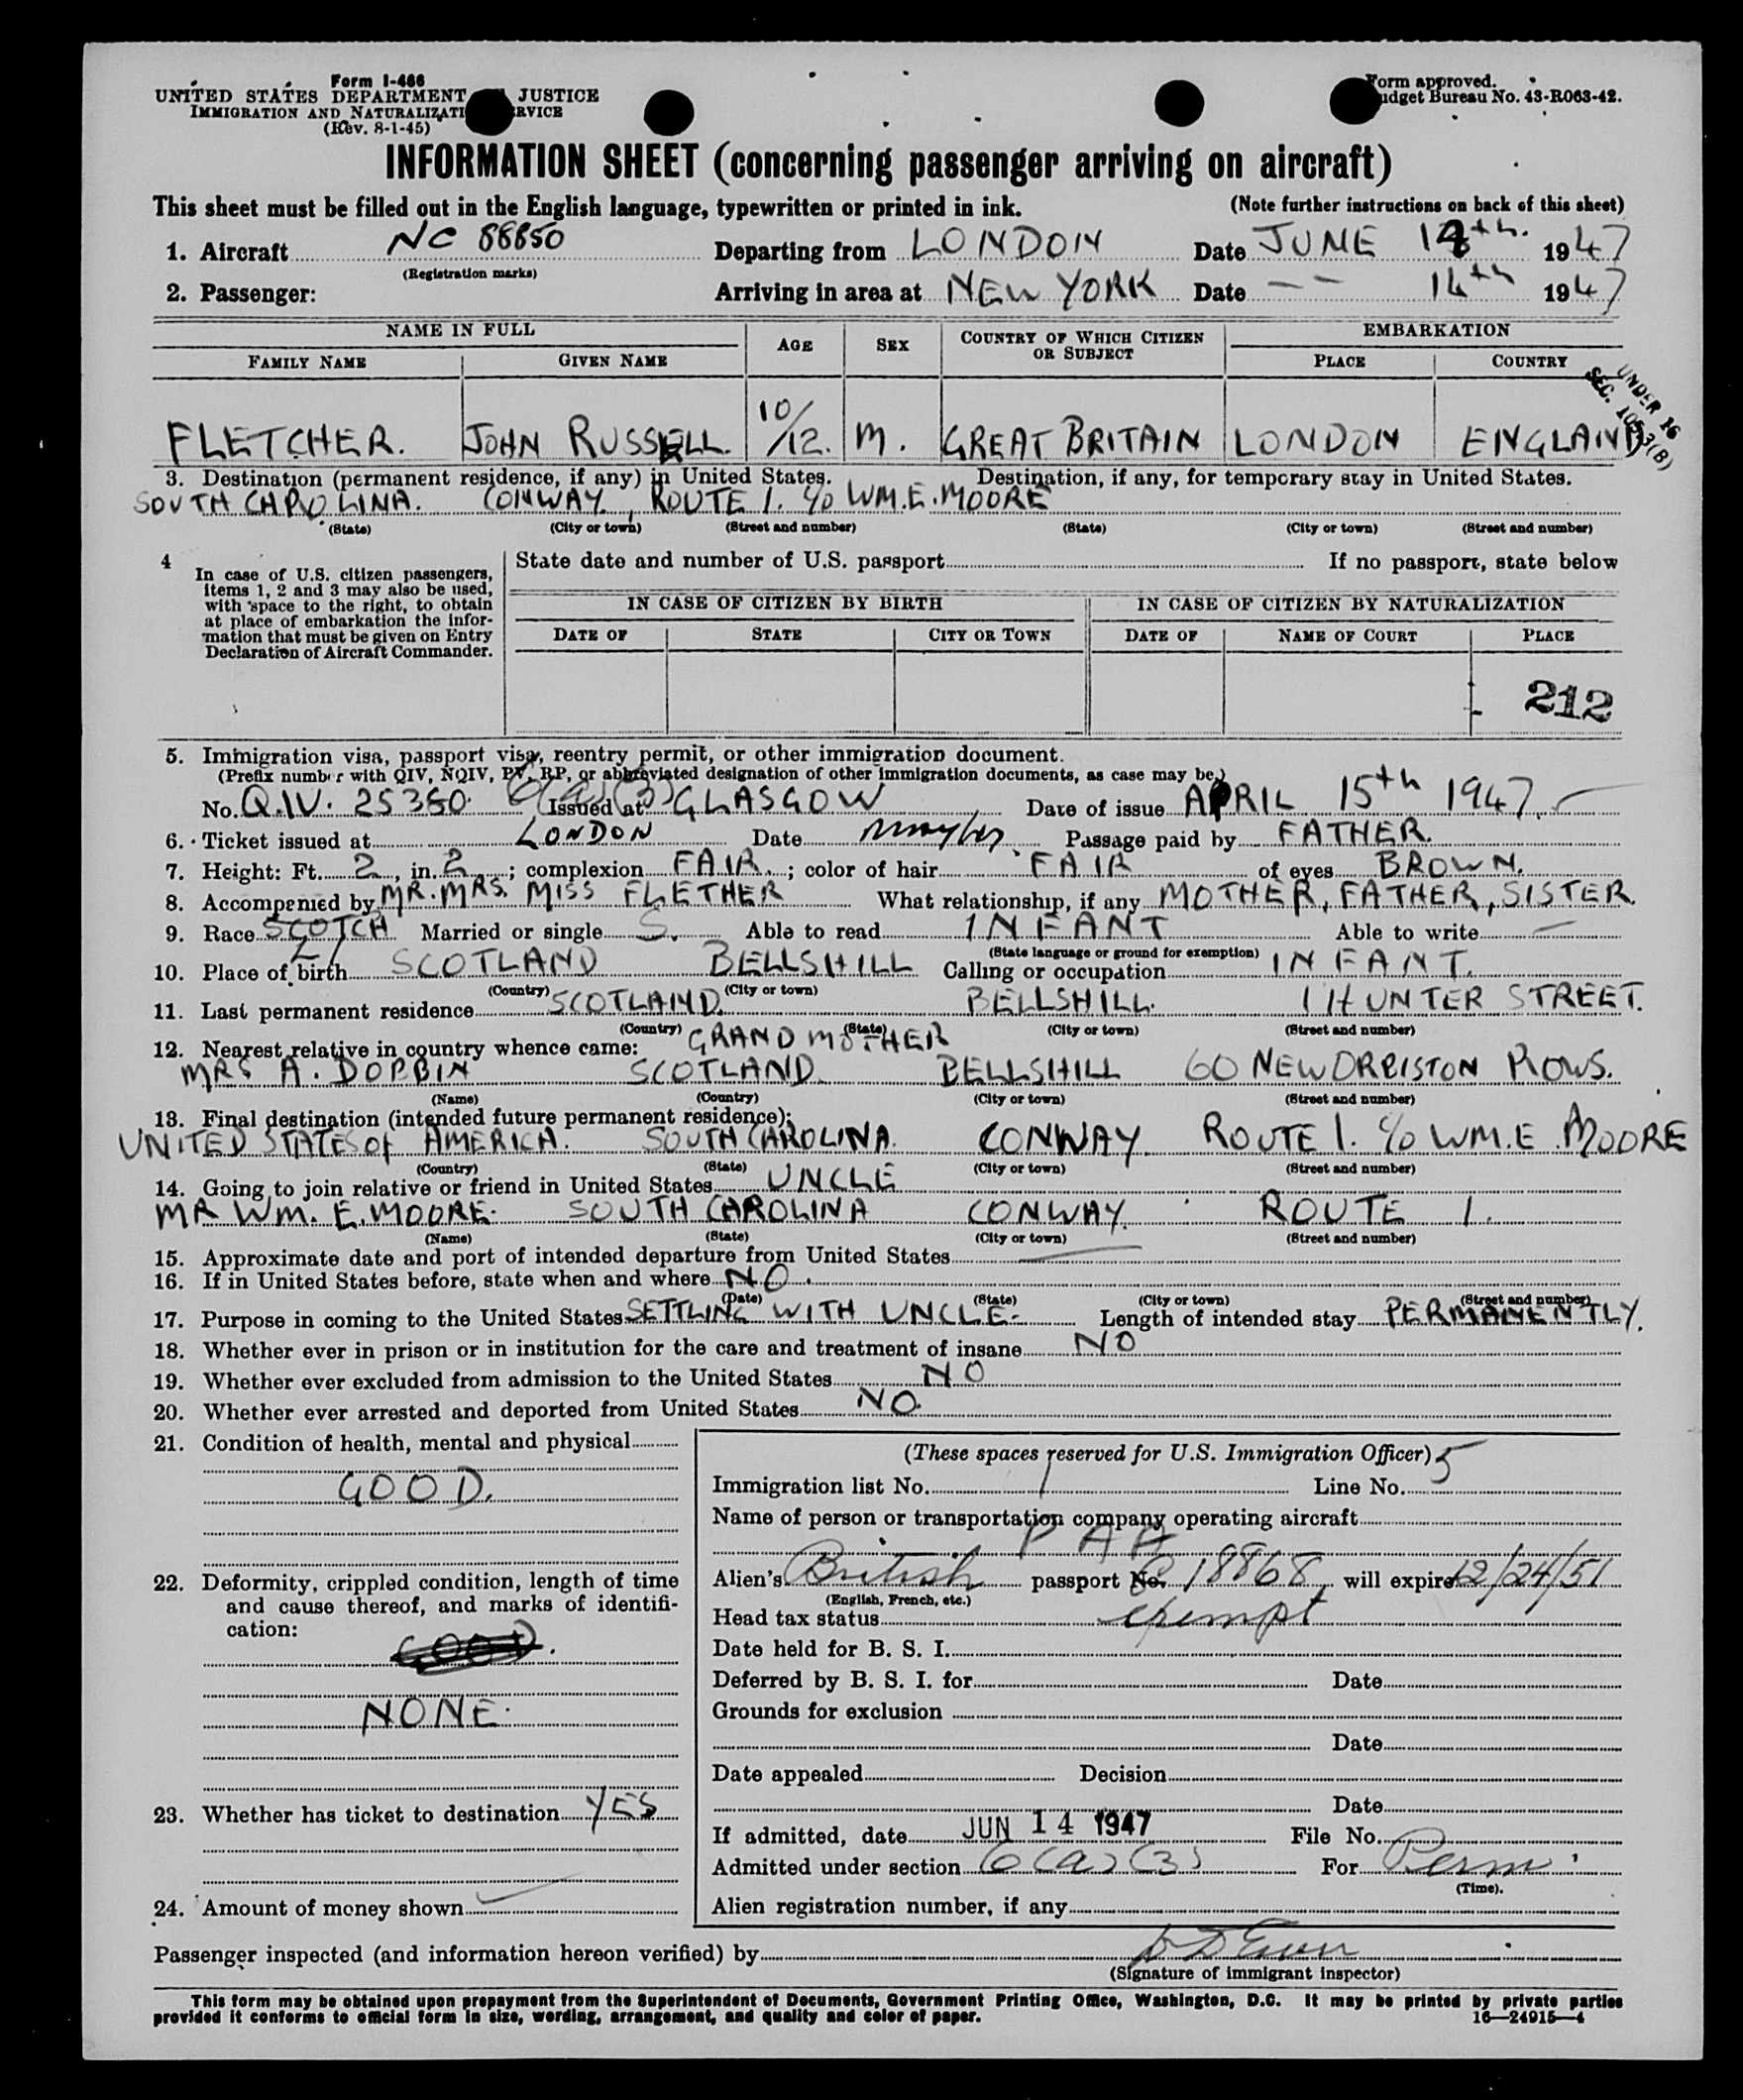 Form I-466
UNITED STATES DEPARTMENT JUSTICE
IMMIGRATION AND NATURALIZATI RVICE
(Rev. 8-1-45)
Form approved.
udget Bureau No. 43-R063-42.
INFORMATION SHEET (concerning passenger arriving on aircraft)
This sheet must be filled out in the English language, typewritten or printed in ink. (Note further instructions on back of this sheet)
1. Aircraft NC 88850 Departing from LONDON Date JUNE 1947
(Registration marks)
2. Passenger: Arriving in area at NEW YORK Date — — 14th 1947
NAME IN FULL AGE SEX COUNTRY OF WHICH CITIZEN OR SUBJECT EMBARKATION
FAMILY NAME GIVEN NAME PLACE COUNTRY
UNDER 16
SEC.
FLETCHER. JOHN RUSSELL. 10/12. M. GREAT BRITAIN LONDON ENGLAND
3. Destination (permanent residence, if any) in United States. Destination, if any, for temporary stay in United States.
SOUTH CAROLINA. CONWAY, ROUTE 1. c/o WM.E.MOORE
(State) (City or town) (Street and number) (State) (City or town) (Street and number)
4 In case of U.S. citizen passengers, items 1, 2 and 3 may also be used, with space to the right, to obtain at place of embarkation the information that must be given on Entry Declaration of Aircraft Commander.
State date and number of U.S. passport If no passport, state below
IN CASE OF CITIZEN BY BIRTH IN CASE OF CITIZEN BY NATURALIZATION
DATE OF STATE CITY OR TOWN DATE OF NAME OF COURT PLACE
212
5. Immigration visa, passport visa, reentry permit, or other immigration document.
(Prefix number with QIV, NQIV, PV, RP, or abbreviated designation of other immigration documents, as case may be.)
No. Q.IV. 25350 6(a)(3) Issued at GLASGOW Date of issue APRIL 15th 1947
6. Ticket issued at LONDON Date Passage paid by FATHER.
7. Height: Ft. 2, in. 2; complexion FAIR.; color of hair FAIR of eyes BROWN.
8. Accompanied by MR. MRS. MISS FLETHER What relationship, if any MOTHER, FATHER, SISTER.
9. Race SCOTCH Married or single S. Able to read INFANT Able to write —
(State language or ground for exemption)
10. Place of birth SCOTLAND BELLSHILL Calling or occupation INFANT.
(Country) (City or town)
11. Last permanent residence SCOTLAND. BELLSHILL. 1 HUNTER STREET.
(Country) (State) (City or town) (Street and number)
12. Nearest relative in country whence came: GRANDMOTHER
MRS A. DOBBIN SCOTLAND. BELLSHILL 60 NEW ORBISTON ROWS.
(Name) (Country) (City or town) (Street and number)
13. Final destination (intended future permanent residence):
UNITED STATES OF AMERICA. SOUTH CAROLINA. CONWAY. ROUTE 1. c/o WM.E.MOORE
(Country) (State) (City or town) (Street and number)
14. Going to join relative or friend in United States UNCLE
MR WM. E. MOORE. SOUTH CAROLINA CONWAY. ROUTE 1.
(Name) (State) (City or town) (Street and number)
15. Approximate date and port of intended departure from United States
16. If in United States before, state when and where NO.
(Date) (State) (City or town) (Street and number)
17. Purpose in coming to the United States SETTLING WITH UNCLE- Length of intended stay PERMANENTLY.
18. Whether ever in prison or in institution for the care and treatment of insane NO
19. Whether ever excluded from admission to the United States NO
20. Whether ever arrested and deported from United States NO.
21. Condition of health, mental and physical
GOOD.
22. Deformity, crippled condition, length of time and cause thereof, and marks of identification:
GOOD.
NONE.
23. Whether has ticket to destination YES
24. Amount of money shown
(These spaces reserved for U.S. Immigration Officer)
Immigration list No. 1 Line No. 5
Name of person or transportation company operating aircraft
P A A
Alien's British passport No. 18868, will expire 12/24/51
(English, French, etc.)
Head tax status exempt
Date held for B. S. I.
Deferred by B. S. I. for Date
Grounds for exclusion
Date
Date appealed Decision
Date
If admitted, date JUN 14 1947 File No.
Admitted under section 6(a)(3) For Perm
(Time).
Alien registration number, if any
Passenger inspected (and information hereon verified) by
(Signature of immigrant inspector)
This form may be obtained upon prepayment from the Superintendent of Documents, Government Printing Office, Washington, D.C. It may be printed by private parties
provided it conforms to official form in size, wording, arrangement, and quality and color of paper. 16—24915—4